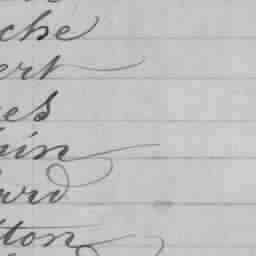 che
ert
es
in
ard
tton